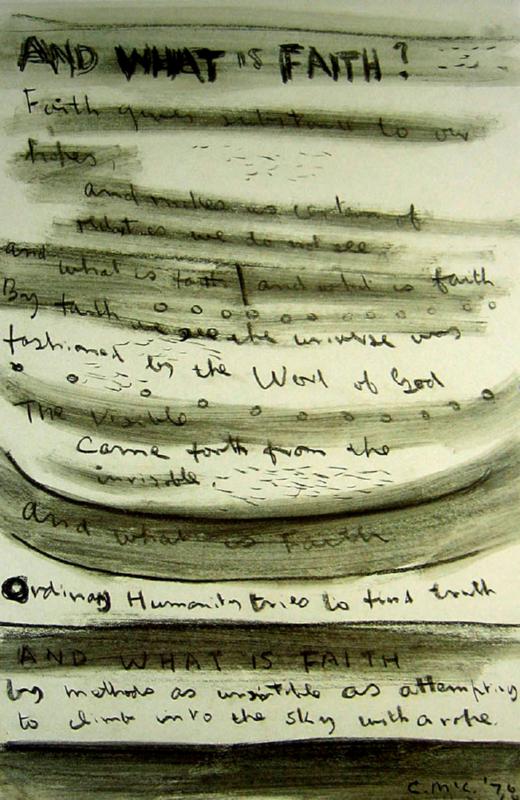 AND WHAT IS FAITH?
Faith gives substance to our
hopes,
and makes us certain of
realities we do not see.
and what is faith | and what is faith
By faith we see the universe was
fashioned by the Word of God
The visible
Came forth from the
invisible.
and what is Faith
Ordinary Humanity tries to find truth
AND WHAT IS FAITH
by methods as unsuitable as attempting
to climb into the sky with a rope.
C. McC. '76